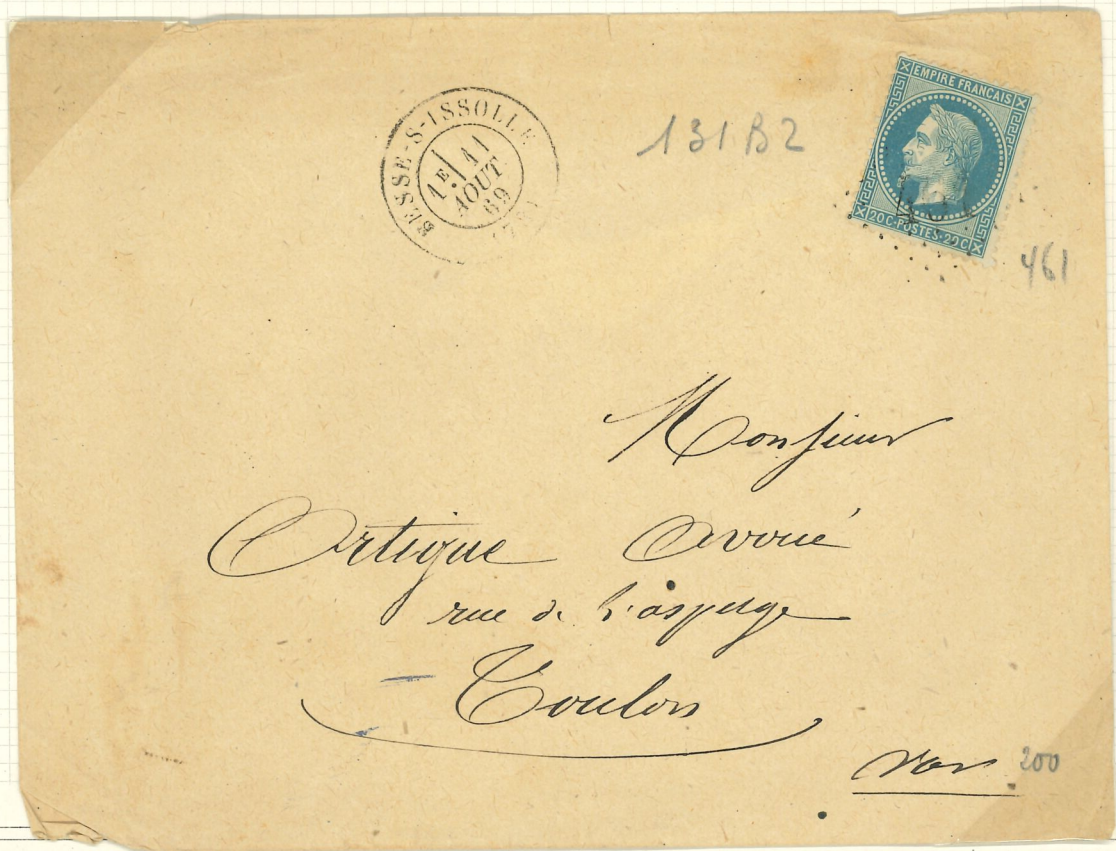 BESSE-S-ISSOLLE
1E 11
AOUT
69
(78)
131 B2
EMPIRE FRANÇAIS
20 C · POSTES · 20 C
461
Monsieur
Ortigue avoué
rue de l'asperge
Toulon
Var
200